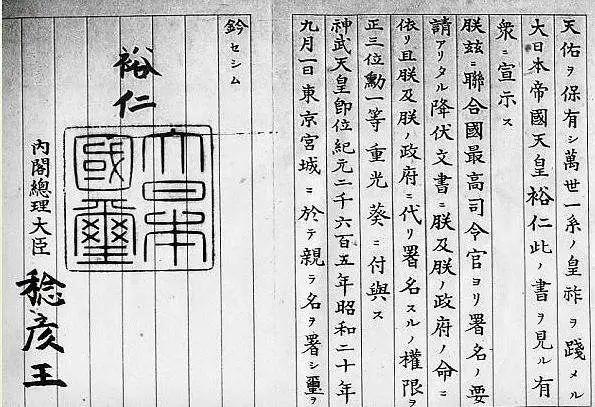 天佑ヲ保有シ萬世一系ノ皇祚ヲ踐メル
大日本帝國天皇裕仁此ノ書ヲ見ル有
衆ニ宣示ス
朕玆ニ聯合國最高司令官ヨリ署名ノ要
請アリタル降伏文書ニ朕及朕ノ政府ノ命ニ
依リ且朕及朕ノ政府ニ代リ署名スルノ權限ヲ
正三位勳一等重光葵ニ付與ス
神武天皇卽位紀元二千六百五年昭和二十年
九月一日東京宮城ニ於テ親ラ名ヲ署シ璽ヲ
鈐セシム
裕仁
大日本
國璽
內閣總理大臣
稔彥王